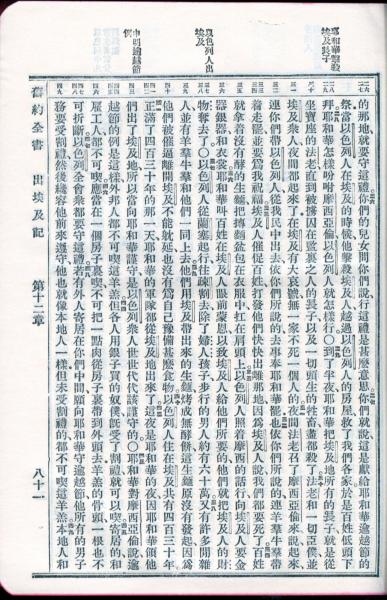 耶和華擊殺
埃及長子
以色列人出
埃及
申明逾越節
例
的那地就要守這禮你們的兒女問你們說這是甚麼意思你們就說這是獻給耶和華逾越節的
祭當以色列人在埃及的時候他擊殺埃及人越過以色列人的房屋救了我們各家於是百姓低頭下
拜耶和華怎樣吩咐摩西亞倫以色列人就怎樣行○到了半夜耶和華把埃及地所有的長子就是從
坐寶座的法老直到被擄囚在監裏之人的長子以及一切頭生的牲畜盡都殺了法老和一切臣僕並
埃及衆人夜間都起來了在埃及有大哀號無一家不死一個人的夜間法老召了摩西亞倫來說起來
連你們帶以色列人從我民中出去依你們所說的去事奉耶和華罷也依你們所說的連羊羣牛羣帶
着走罷並要爲我祝福埃及人催促百姓打發他們快快出離那地因爲埃及人說我們都要死了百姓
就拿着沒有酵的生麵把摶麵盆包在衣服中扛在肩頭上以色列人照着摩西的話行向埃及人要金
器銀器和衣裳耶和華叫百姓在埃及人眼前蒙恩以致埃及人給他們所要的他們就把埃及人的財
物奪去了○以色列人從蘭塞起行往疎割去除了婦人孩子步行的男人約有六十萬又有許多閒雜
人並有羊羣牛羣和他們一同上去他們用埃及帶出來的生麵烤成無酵餅這生麵原沒有發起因爲
他們被催逼離開埃及不能就延也沒有爲自己豫備甚麼食物以色列人住在埃及共有四百三十年
正滿了四百三十年的那一天耶和華的軍隊都從埃及地出來了這夜是耶和華的夜因耶和華領他
們出了埃及地所以當向耶和華謹守是以色列衆人世世代代該謹守的○耶和華對摩西亞倫說逾
越節的例是這樣外邦人都不可喫這羊羔但各人用銀子買的奴僕既受了割禮就可以喫寄居的和
雇工人都不可喫應當在一個房子裏喫不可把一點肉從房子裏帶到外頭去羊羔的骨頭一根也不
可折斷以色列全會衆都要守這禮若有外人寄居在你們中間願向耶和華守逾越節他所有的男子
務要受割禮然後纔容他前來遵守他也就像本地人一樣但未受割禮的都不可喫這羊羔本地人和
舊約全書 出埃及記 第十二章 八十一